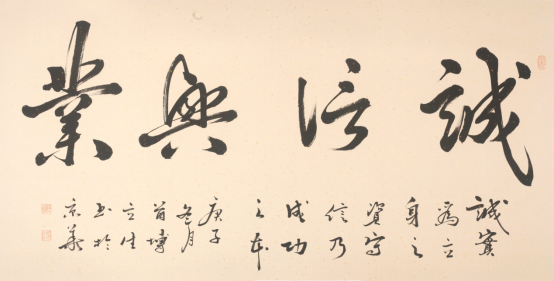 誠信興業
誠實
為立
身之
資守
信乃
成功
之本
庚子
冬月
首博
立生
书於
京華